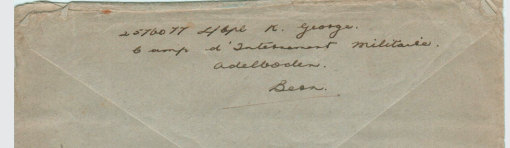 2576077 L/Cpl R. George.
Camp d'Internment Militaire.
Adelboden.
Bern.